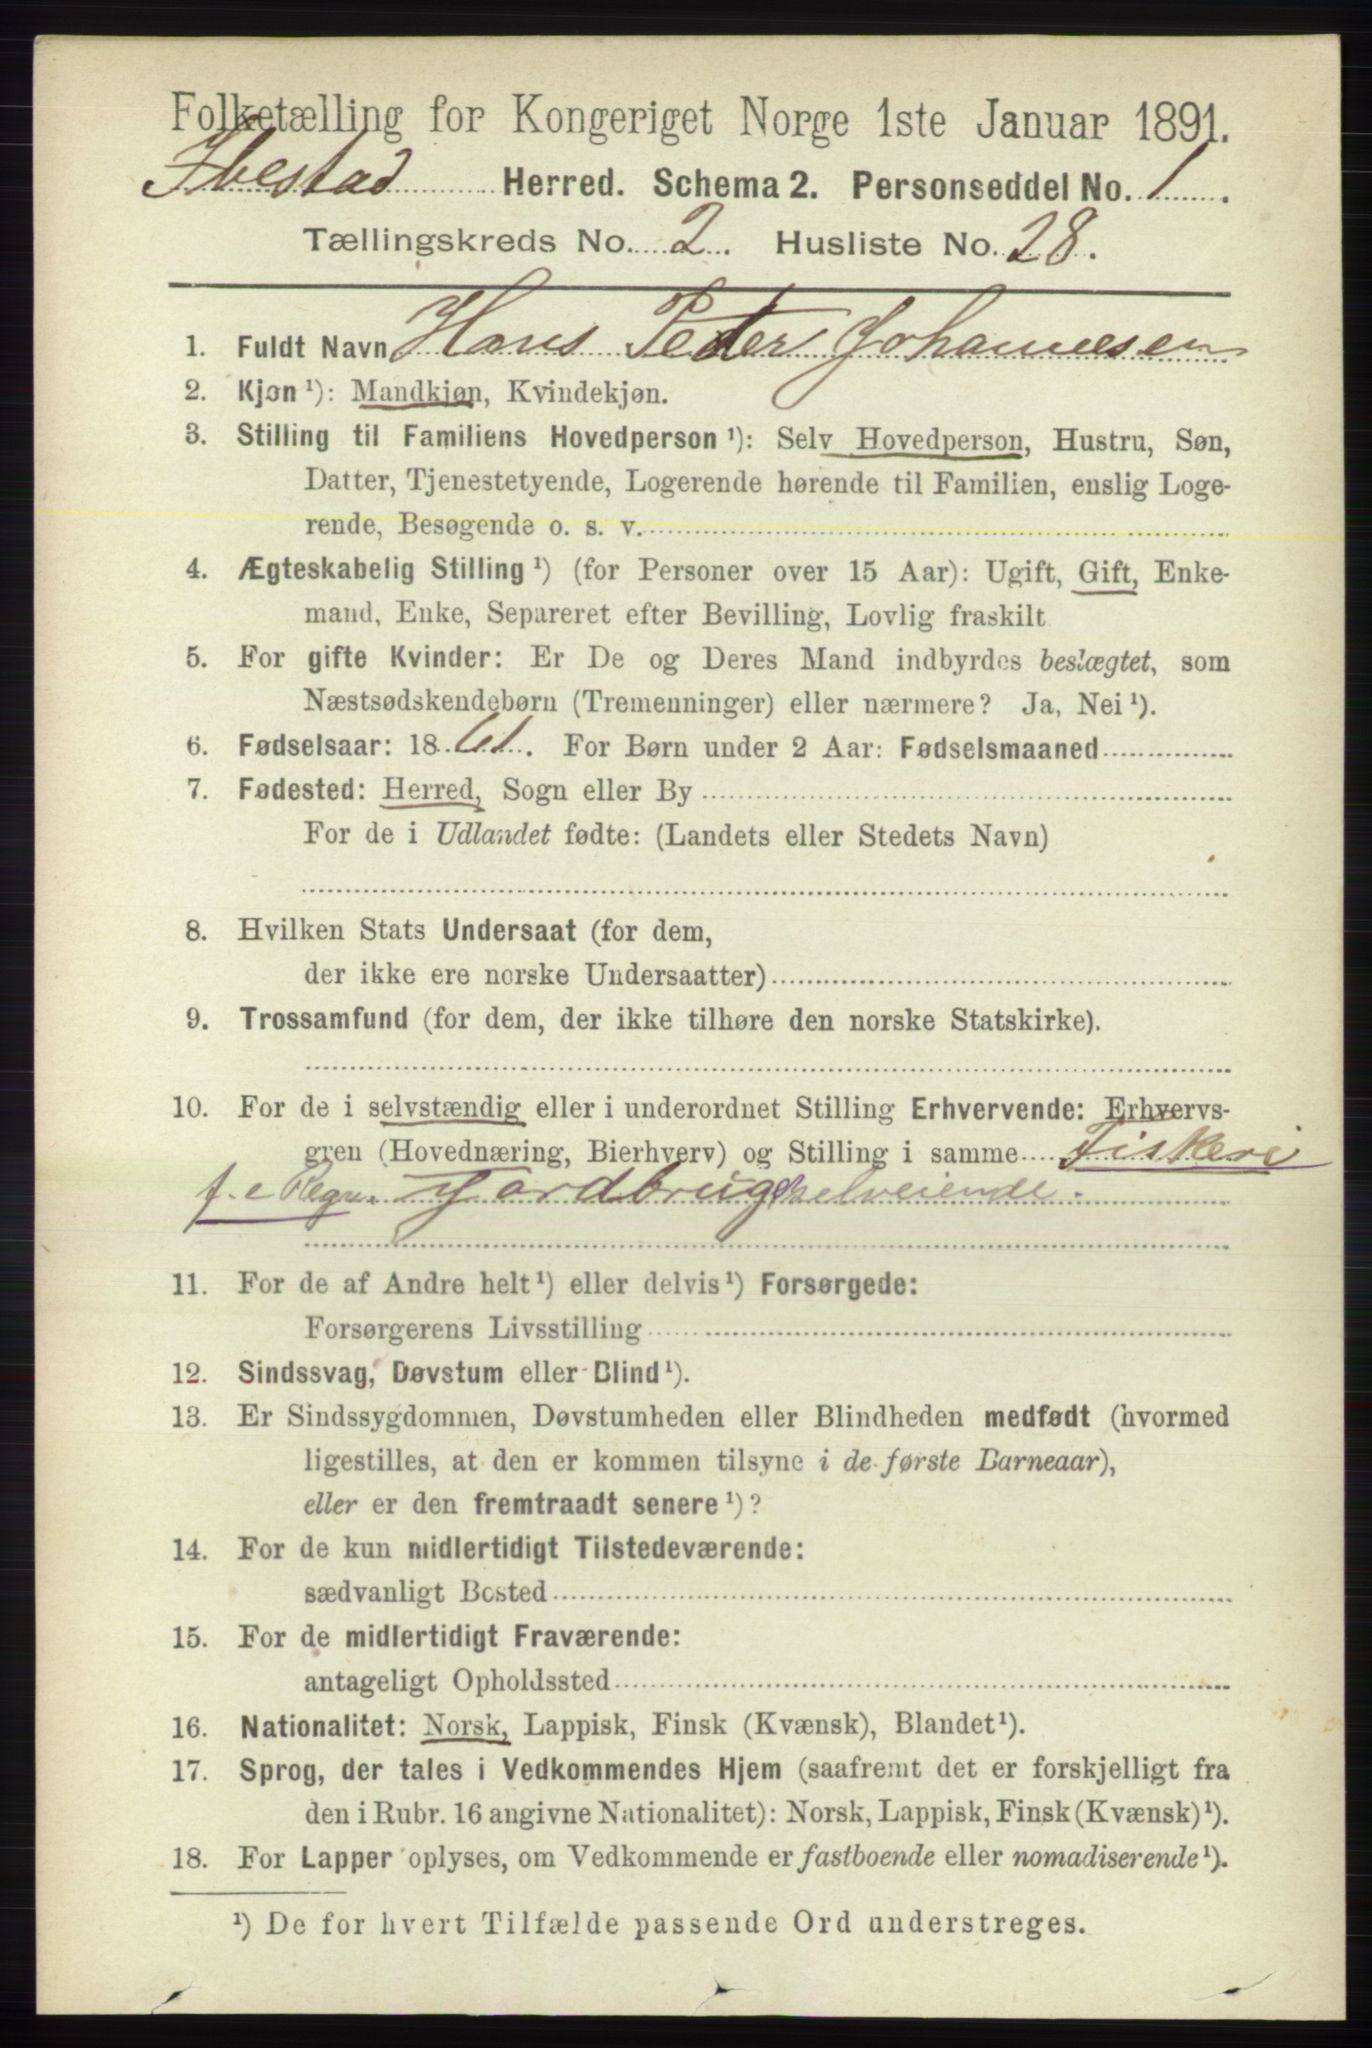 Folketælling for Kongeriget Norge 1ste Januar 1891.
Ibestad Herred. Schema 2. Personseddel No. 1.
Tællingskreds No. 2. Husliste No. 28.
1. Fuldt Navn Hans Peder Johannesen
2. Kjøn ¹): Mandkjøn, Kvindekjøn.
3. Stilling til Familiens Hovedperson ¹): Selv Hovedperson, Hustru, Søn,
Datter, Tjenestetyende, Logerende hørende til Familien, enslig Loge-
rende, Besøgende o. s. v.
4. Ægteskabelig Stilling ¹) (for Personer over 15 Aar): Ugift, Gift, Enke-
mand, Enke, Separeret efter Bevilling, Lovlig fraskilt
5. For gifte Kvinder: Er De og Deres Mand indbyrdes beslægtet, som
Næstsødskendebørn (Tremenninger) eller nærmere? Ja, Nei ¹).
6. Fødselsaar: 1861. For Børn under 2 Aar: Fødselsmaaned
7. Fødested: Herred, Sogn eller By
For de i Udlandet fødte: (Landets eller Stedets Navn)
8. Hvilken Stats Undersaat (for dem,
der ikke ere norske Undersaatter)
9. Trossamfund (for dem, der ikke tilhøre den norske Statskirke).
10. For de i selvstændig eller i underordnet Stilling Erhvervende: Erhvervs-
gren (Hovednæring, Bierhverv) og Stilling i samme Fiskeri
f. e Regn. Jordbrug selveiende.
11. For de af Andre helt ¹) eller delvis ¹) Forsørgede:
Forsørgerens Livsstilling
12. Sindssvag, Døvstum eller Blind ¹).
13. Er Sindssygdommen, Døvstumheden eller Blindheden medfødt (hvormed
ligestilles, at den er kommen tilsyne i de første Barneaar),
eller er den fremtraadt senere ¹)?
14. For de kun midlertidigt Tilstedeværende:
sædvanligt Bosted
15. For de midlertidigt Fraværende:
antageligt Opholdssted
16. Nationalitet: Norsk, Lappisk, Finsk (Kvænsk), Blandet ¹).
17. Sprog, der tales i Vedkommendes Hjem (saafremt det er forskjelligt fra
den i Rubr. 16 angivne Nationalitet): Norsk, Lappisk, Finsk (Kvænsk) ¹).
18. For Lapper oplyses, om Vedkommende er fastboende eller nomadiserende ¹).
¹) De for hvert Tilfælde passende Ord understreges.